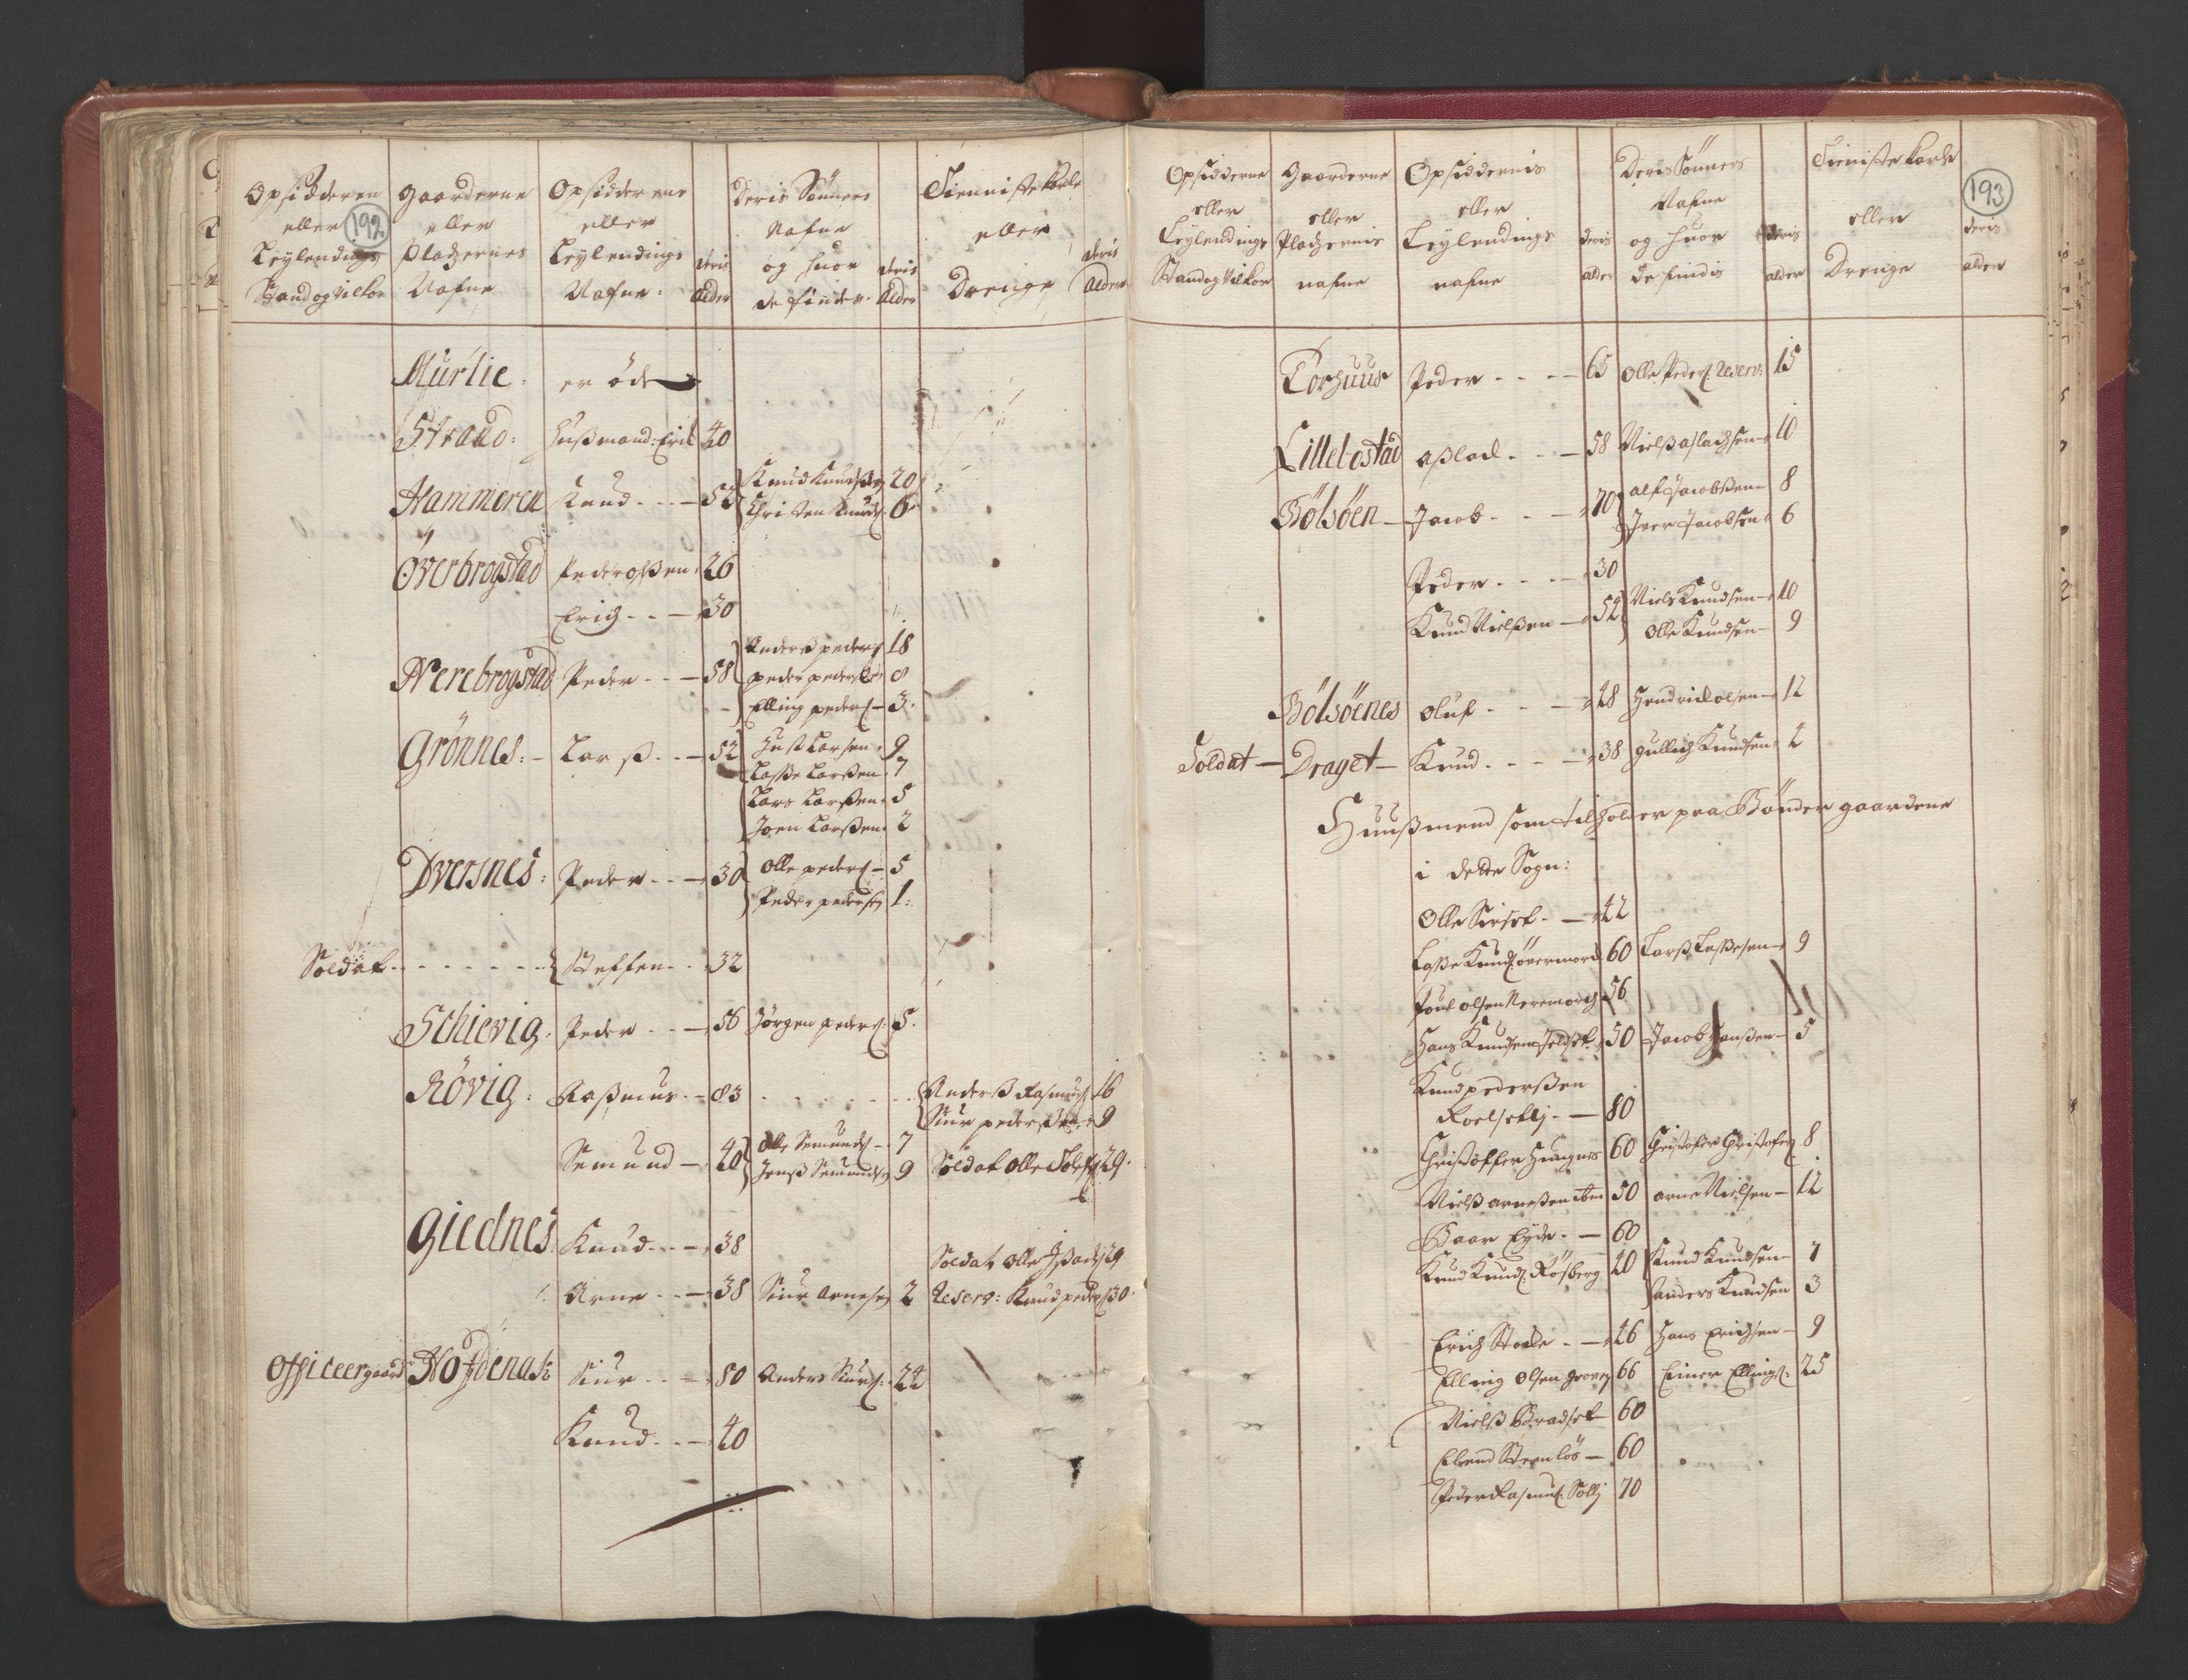 192
Opsidderen eller Leylendings Stand og Vilkor
Gaarderne eller Pladzernes Nafne
Opsidderene eller Leylendings Nafne:
deris Alder
Deris Sønners Nafne og huor de findes
deris Alder
Tienniste Karle eller Drenge
deris Alder
Murlie: er øde
Strand: Hußmand: Erik 40
Hammeren Knud - - - 52 Knud Knudßen 20
Christen Knuds: 6
Øverbrogstad Peder Oßen 26
Erich - - - 30
Nerebrogstad Peder - - - 58 Anderß peders 18
peder peders 8
Elling peders - 3
Grönnes: - Larß - - - 52 Larsen 9
Laße Larßen 7
Lars Larßen 5
Joen Larßen 2
Dversnes: Peder - - - 30 Olle peders - 5
Peder pedersen 1:
Soldat - - - - - - Steffen - - 32
Schievig: Peder - - - 56 Jörgen peders: 5.
Rövig: Raßmus - - 83 - - - - - Anderß Rasmus 16
Siur pederß 9
Semund - 40 Olle Semunds - 7
Jenß Semunds 9 Soldat Olle 29.
Giednes Knud - - - 38
Soldat Olle 29
Arne - - - 38 Siur Arnesen 2 Reserv: Knud peders 30
Officeergaard Siur - - - 80 Anders Siurs: 24
Knud - - - 40
193
Opsidderne eller Leylendings Stand og Vilkor
Gaarderne eller Pladzernis nafne
Opsiddernis eller Leylendings nafne
deris alder
Deris Sønners Nafne og huor de findis
deris alder
Tieniste Karle eller Drenge
deris alder
Torhuus Peder - - - 65 Olle Peders: Reserv: 15
Lillebostad Aßlach - - - 58 Nielß Aslachsen 10
Bölsöen - Jacob - - - 70 Alf Jacobßen 8
Iver Jacobsen 6
Peder - - - 30
Knud Nielßen - 52 Niels Knudsen 10
Olle Knudsen - 9
Bölsöenes Oluf - - - 48 Hendrick Olsen 12
Soldat - Draget - Knud - - - 38 Gullich Knudsen 2
Huußmend som tilholder paa Bönder gaardene
i dette Sogn:
Olle - 42
Laße Knuds övermord 60 Larß Laßesen 9
Poul Olsen Neremorch 56
Hans Knudsen 50 Jacob Hanßen - 5
Knud pederßen
- 80
Christoffer 60 Christofer Christofers 8
Nielß Arneßen ibm 50 Arne Nielsen - 12
Baar Eyde - 60
Knud Knuds: Rösberg 40 Knud Knudsen - 7
Anders Knudsen 3
Erich - - 46 Hans Erichsen - 9
Elling Olsen 66 Einer Ellings: 25
Nielß Bradset 60
Elend - 60
Peder Rasmus: Solli 70